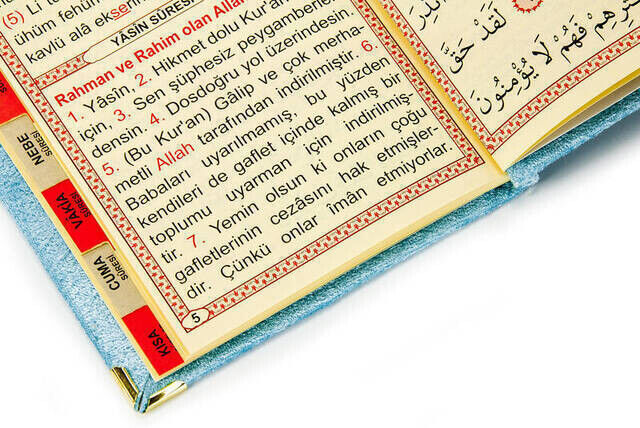 (5) Li t
ühüm fehüm
kavlü alâ ekseri
YÂSÎN SÛRE
Rahman ve Rahim olan Allah
1. Yâsîn, 2. Hikmet dolu Kur'an
için, 3. Sen şüphesiz peygamberler
densin. 4. Dosdoğru yol üzerindesin.
5. (Bu Kur'an) Gâlip ve çok merha-
metli Allah tarafından indirilmiştir. 6.
Babaları uyarılmamış, bu yüzden
kendileri de gaflet içinde kalmış bir
toplumu uyarman için indirilmiş-
tir. 7. Yemin olsun ki onların çoğu
gafletlerinin cezâsını hak etmişler-
dir. Çünkü onlar imân etmiyorlar.
5
NEBE
SÛRESİ
VÂKIA
SÛRESİ
CUMA
SÛRESİ
KISA
لَقَدْ حَقَّ
فَهُمْ لَا يُؤْمِنُونَ